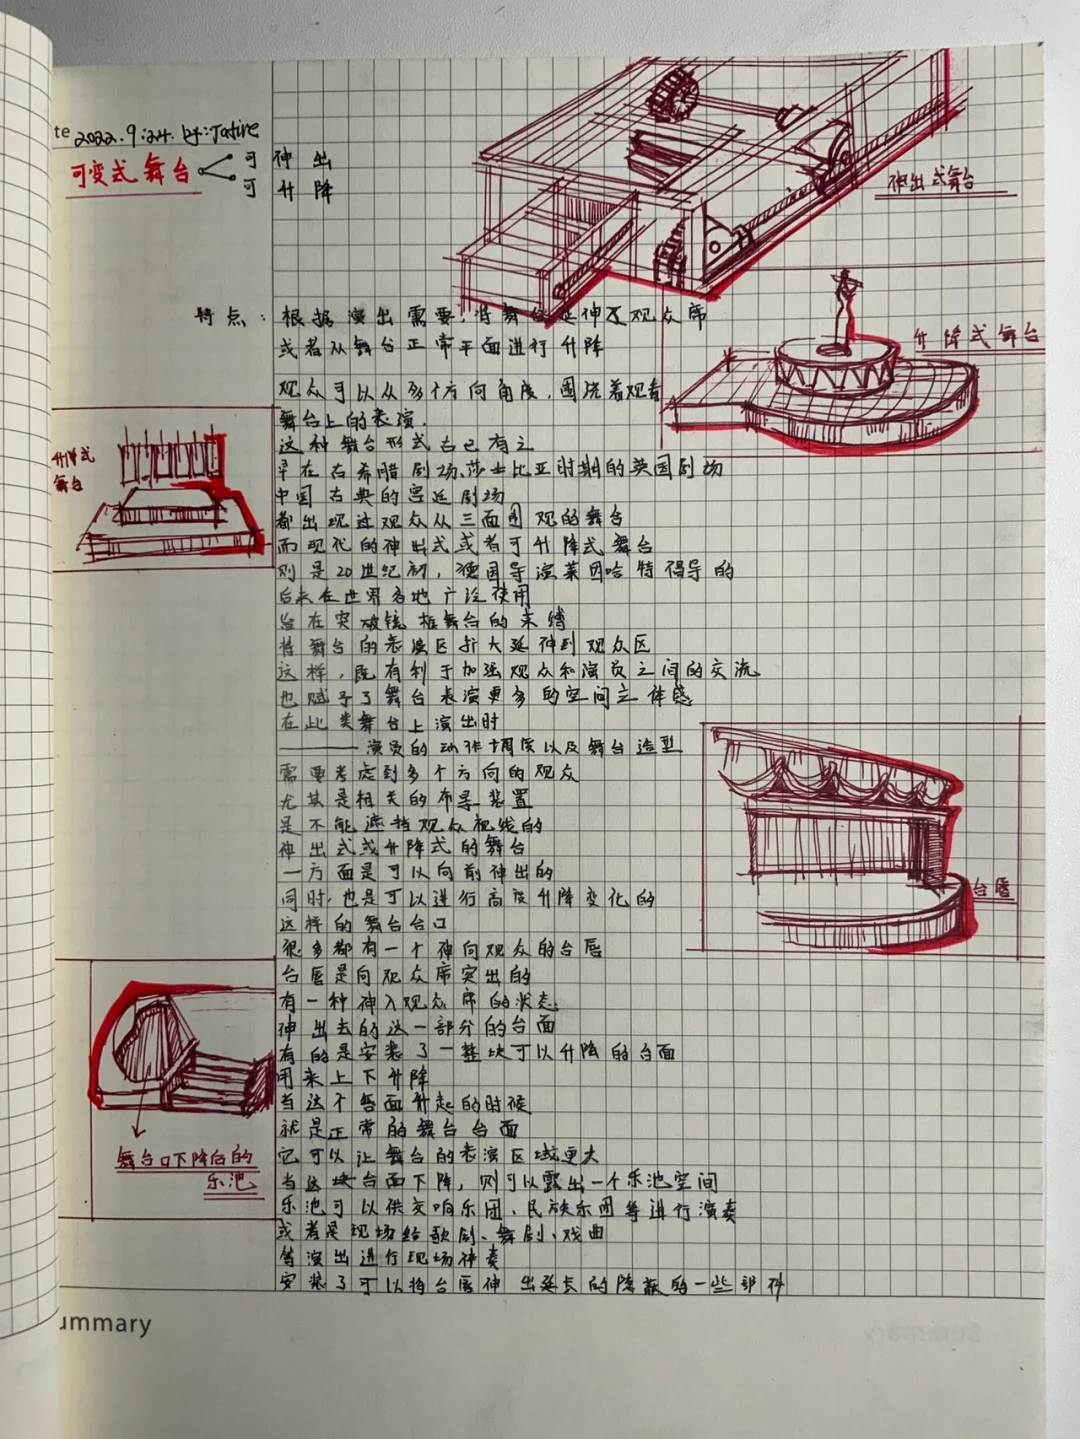 te 2022.9.24. by:Jatire
可变式舞台
可伸出
可升降
伸出式舞台
升降式舞台
特点：根据演出需要，将舞台延伸至观众席
或者从舞台正常平面进行升降
观众可以从多个方向角度，围绕着观看
舞台上的表演.
这种舞台形式古已有之
早在古希腊剧场、莎士比亚时期的英国剧场
中国古典的宫廷剧场
都出现过观众从三面围观的舞台
而现代的伸出式或者可升降式舞台
则是20世纪初，德国导演莱因哈特倡导的
后来在世界各地广泛使用
旨在突破镜框舞台的束缚
将舞台的表演区扩大延伸到观众区
这样，既有利于加强观众和演员之间的交流
也赋予了舞台表演更多的空间立体感
在此类舞台上演出时
——演员的动作调度以及舞台造型
需要考虑到多个方向的观众
尤其是相关的布景装置
是不能遮挡观众视线的
伸出式或升降式的舞台
一方面是可以向前伸出的
同时，也是可以进行高度升降变化的
这样的舞台台口
很多都有一个伸向观众的台唇
台唇是向观众席突出的
有一种伸入观众席的状态
伸出去的这一部分的台面
有的是安装了一整块可以升降的台面
用来上下升降
当这个台面升起的时候
就是正常的舞台台面
它可以让舞台的表演区域更大
当这块台面下降，则可以露出一个乐池空间
乐池可以供交响乐团、民族乐团等进行演奏
或者是现场给歌剧、舞剧、戏曲
等演出进行现场伴奏
安装了可以将台唇伸出延长的隐蔽的一些部件
升降式
舞台
台唇
舞台口下降后的
乐池
ummary